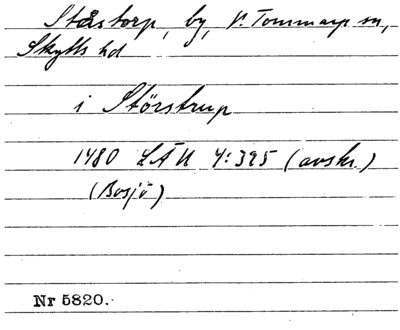 Ståstorp, by, V. Tommarp sn,
Skytts hd
i Störstrup
1480 LÄU 4:395 (avskr.)
(Bosjö)
Nr 5820.